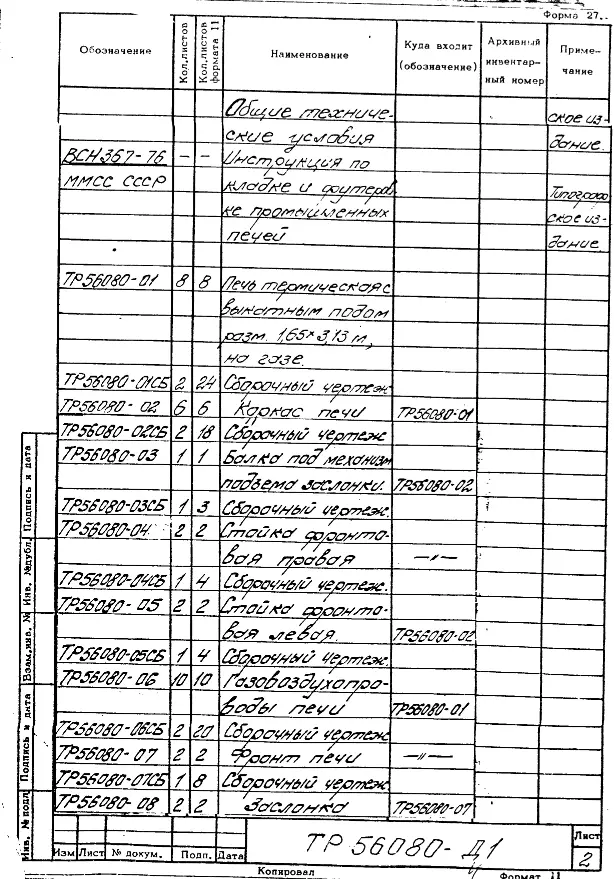 Форма 27.
Обозначение Кол.листов Кол.листов формата 11 Наименование Куда входит (обозначение) Архивный инвентар-ный номер Приме-чание
Общие техниче- ское из-
ские условия дание.
ВСН367-76 – – Инструкция по
ММСС СССР кладке и футеров Типографс
ке промышленных ское из-
печей дание
ТР56080-01 8 8 Печь термическая с
выкатным подом
разм. 1,65×3,13 м,
на газе.
ТР56080-01СБ 2 24 Сборочный чертеж
ТР56080-02 6 6 Каркас печи ТР56080-01
ТР56080-02СБ 2 18 Сборочный чертеж
ТР56080-03 1 1 Балка под механизм
подъема заслонки. ТР56080-02
ТР56080-03СБ 1 3 Сборочный чертеж.
ТР56080-04 2 2 Стойка фронто-
вая правая —〃—
ТР56080-04СБ 1 4 Сборочный чертеж.
ТР56080-05 2 2 Стойка фронто-
вая левая. ТР56080-02
ТР56080-05СБ 1 4 Сборочный чертеж.
ТР56080-06 10 10 Газовоздухопро-
воды печи ТР56080-01
ТР56080-06СБ 2 20 Сборочный чертеж
ТР56080-07 2 2 Фронт печи —〃—
ТР56080-07СБ 1 8 Сборочный чертеж
ТР56080-08 2 2 Заслонка ТР56080-07
Инв. № подл Подпись и дата Взам.инв. № Инв. №дубл. Подпись и дата
Изм Лист № докум. Подп. Дата
ТР 56080-Д1
Лист
2
Копировал
Формат 11